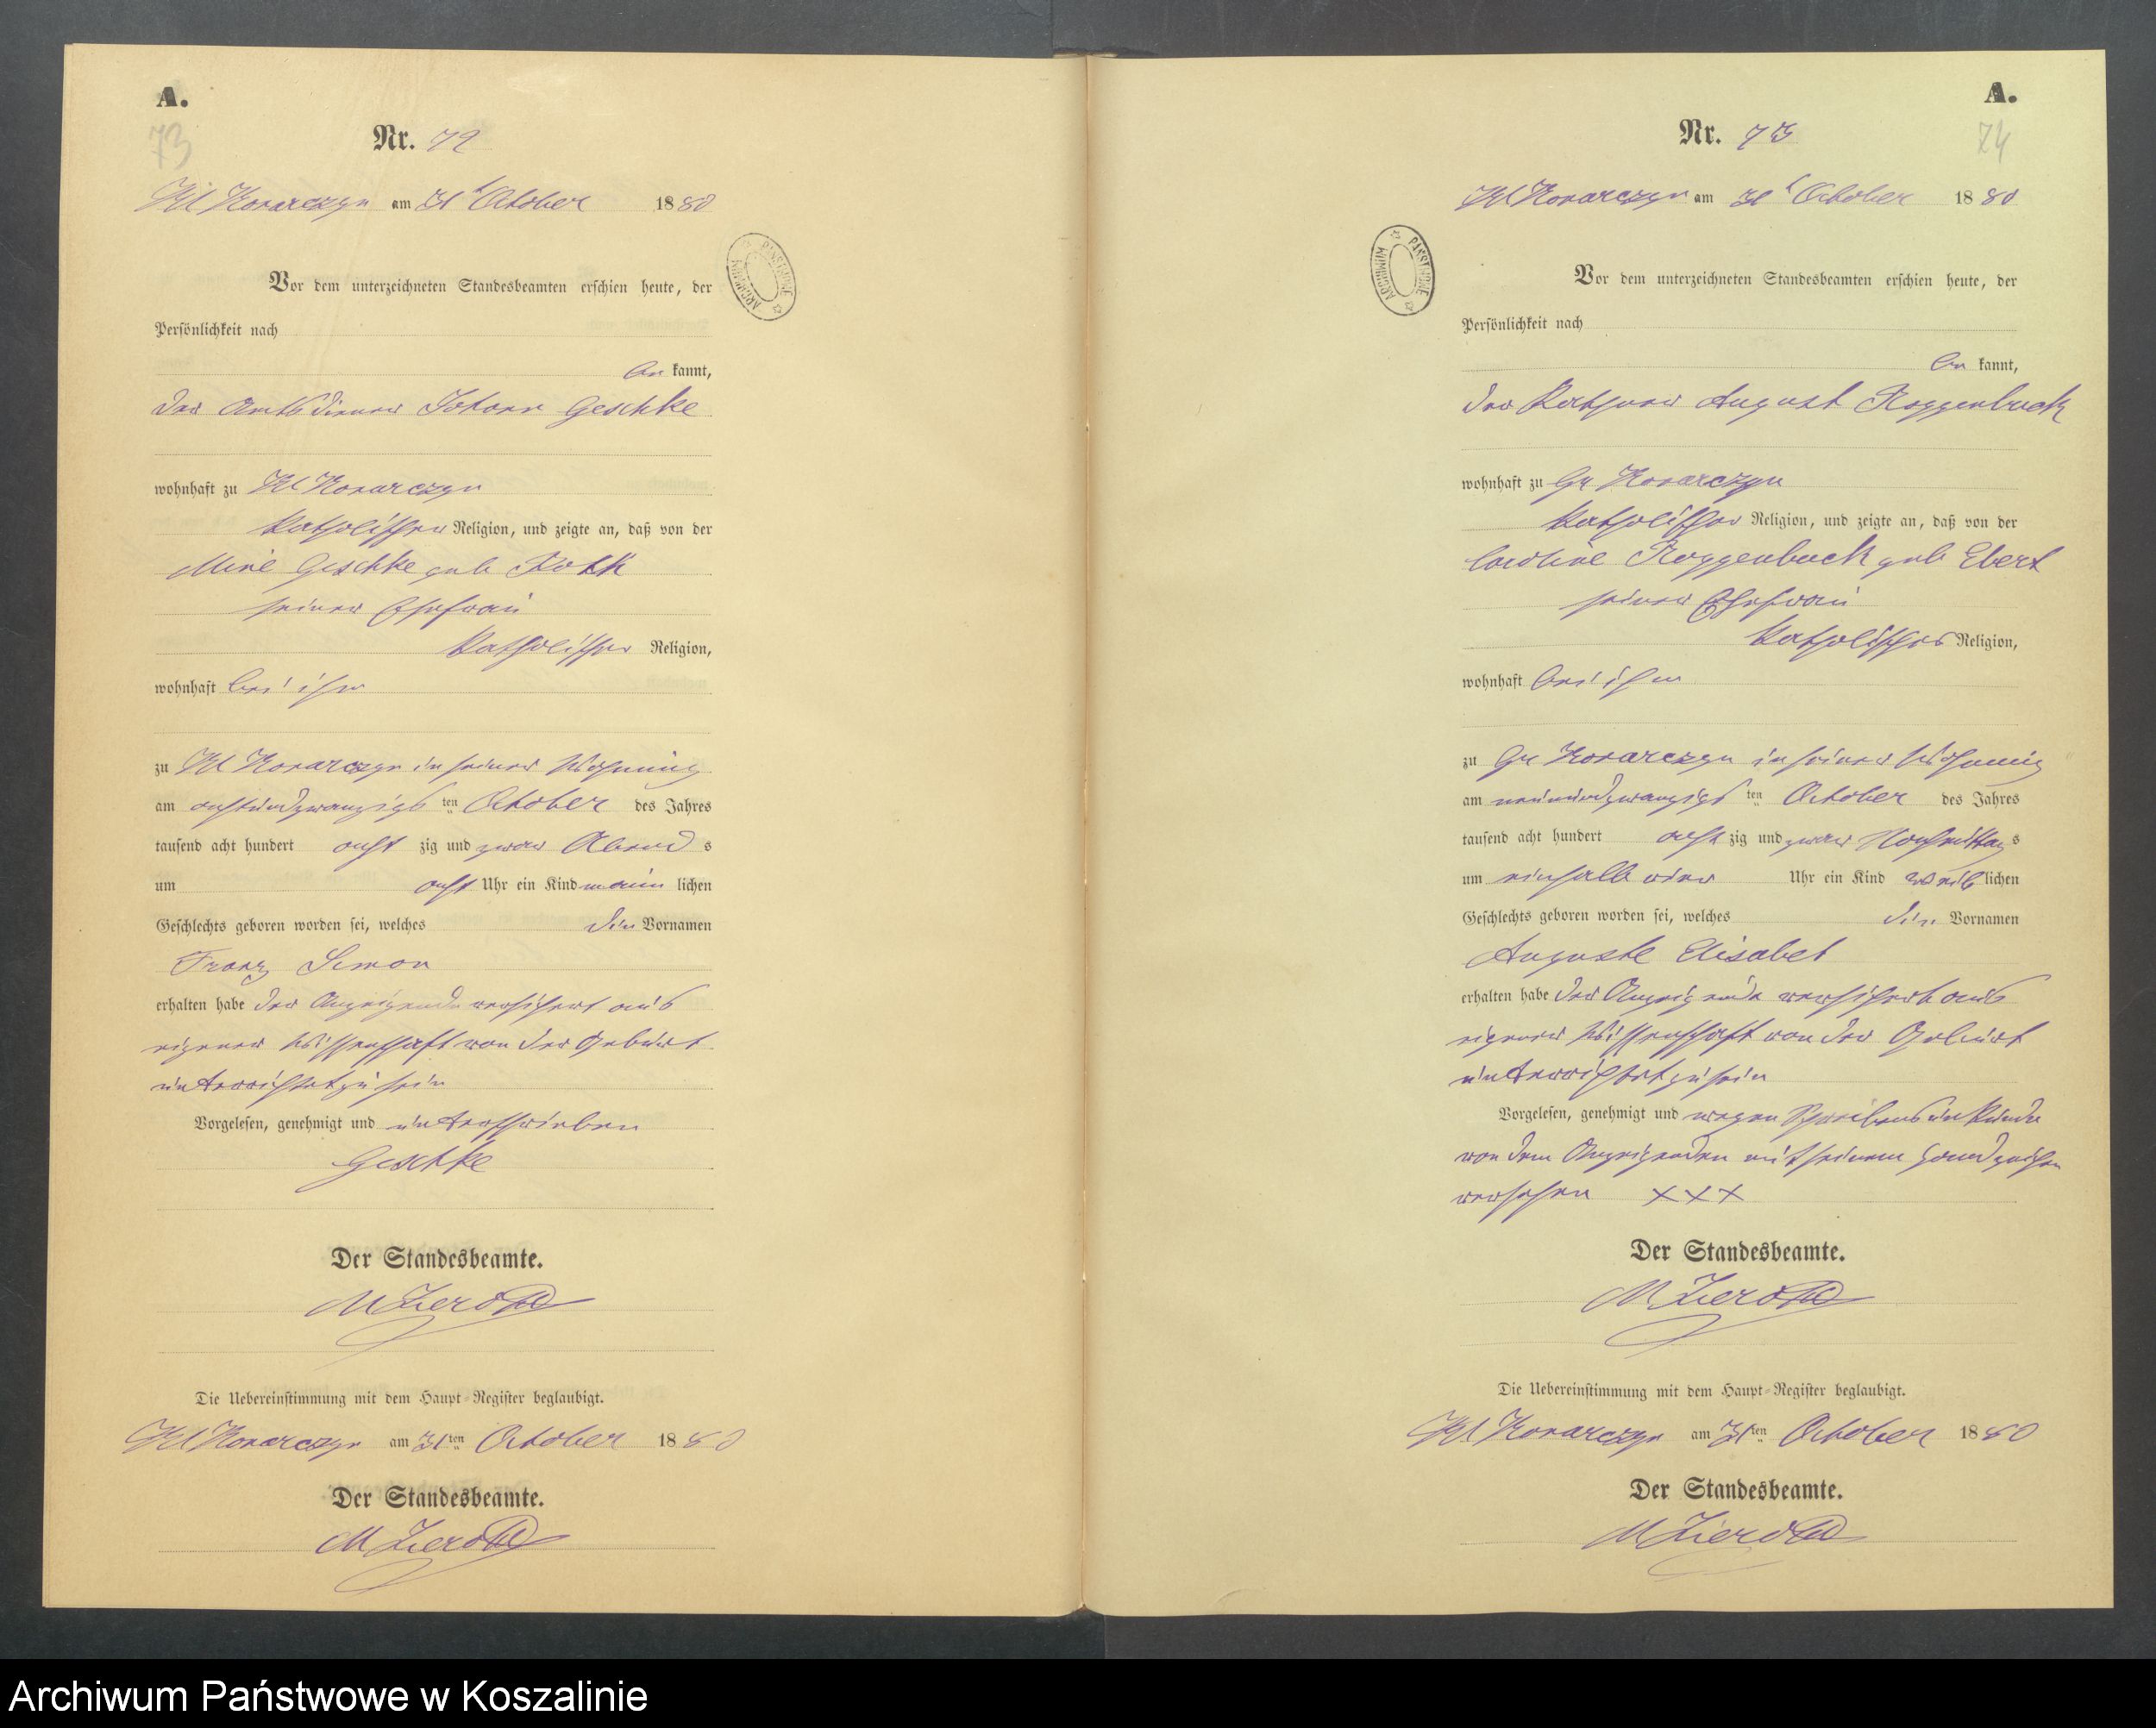 A.
73
Nr. 72
Kl Konarczyn am 31t October 1880
Vor dem unterzeichneten Standesbeamten erschien heute, der
Persönlichkeit nach
be kannt,
der Amtsdiener Johann Geschke
wohnhaft zu Kl Konarczyn
katholischer Religion, und zeigte an, daß von der
Geschke geb
seiner Ehefrau
katholischer Religion,
wohnhaft bei ihm
zu Kl Konarczyn in seiner Wohnung
am achtundzwanzigs ten October des Jahres
tausend acht hundert acht zig und zwar Abend s
um acht Uhr ein Kind männ lichen
Geschlechts geboren worden sei, welches die Vornamen
Franz Simon
erhalten habe der Anzeigende versichert aus
eigener Wissenschaft von der Geburt
unterrichtet zu sein
Vorgelesen, genehmigt und unterschrieben
Geschke
Der Standesbeamte.
Die Uebereinstimmung mit dem Haupt-Register beglaubigt.
Kl Konarczyn am 31ten October 1880
Der Standesbeamte.
ARCHIWUM PAŃSTWOWE
A.
74
Nr. 73
Kl Konarczyn am 31t October 1880
Vor dem unterzeichneten Standesbeamten erschien heute, der
Persönlichkeit nach
be kannt,
der Kathner August Roggenbuck
wohnhaft zu Gr Konarczyn
katholischer Religion, und zeigte an, daß von der
Caroline Roggenbuck geb Ebert
seiner Ehefrau
katholischer Religion,
wohnhaft bei ihm
zu Gr Konarczyn in seiner Wohnung
am neunundzwanzigs ten October des Jahres
tausend acht hundert acht zig und zwar Nachmittag s
um einhalb vier Uhr ein Kind weib lichen
Geschlechts geboren worden sei, welches die Vornamen
Auguste Elisabet
erhalten habe der Anzeigende versichert aus
eigener Wissenschaft von der Geburt
unterrichtet zu sein
Vorgelesen, genehmigt und wegen Schreibensunkunde
von dem Anzeigenden mit seinem Handzeichen
versehen XXX
Der Standesbeamte.
Die Uebereinstimmung mit dem Haupt-Register beglaubigt.
Kl Konarczyn am 31ten October 1880
Der Standesbeamte.
ARCHIWUM PAŃSTWOWE
Archiwum Państwowe w Koszalinie